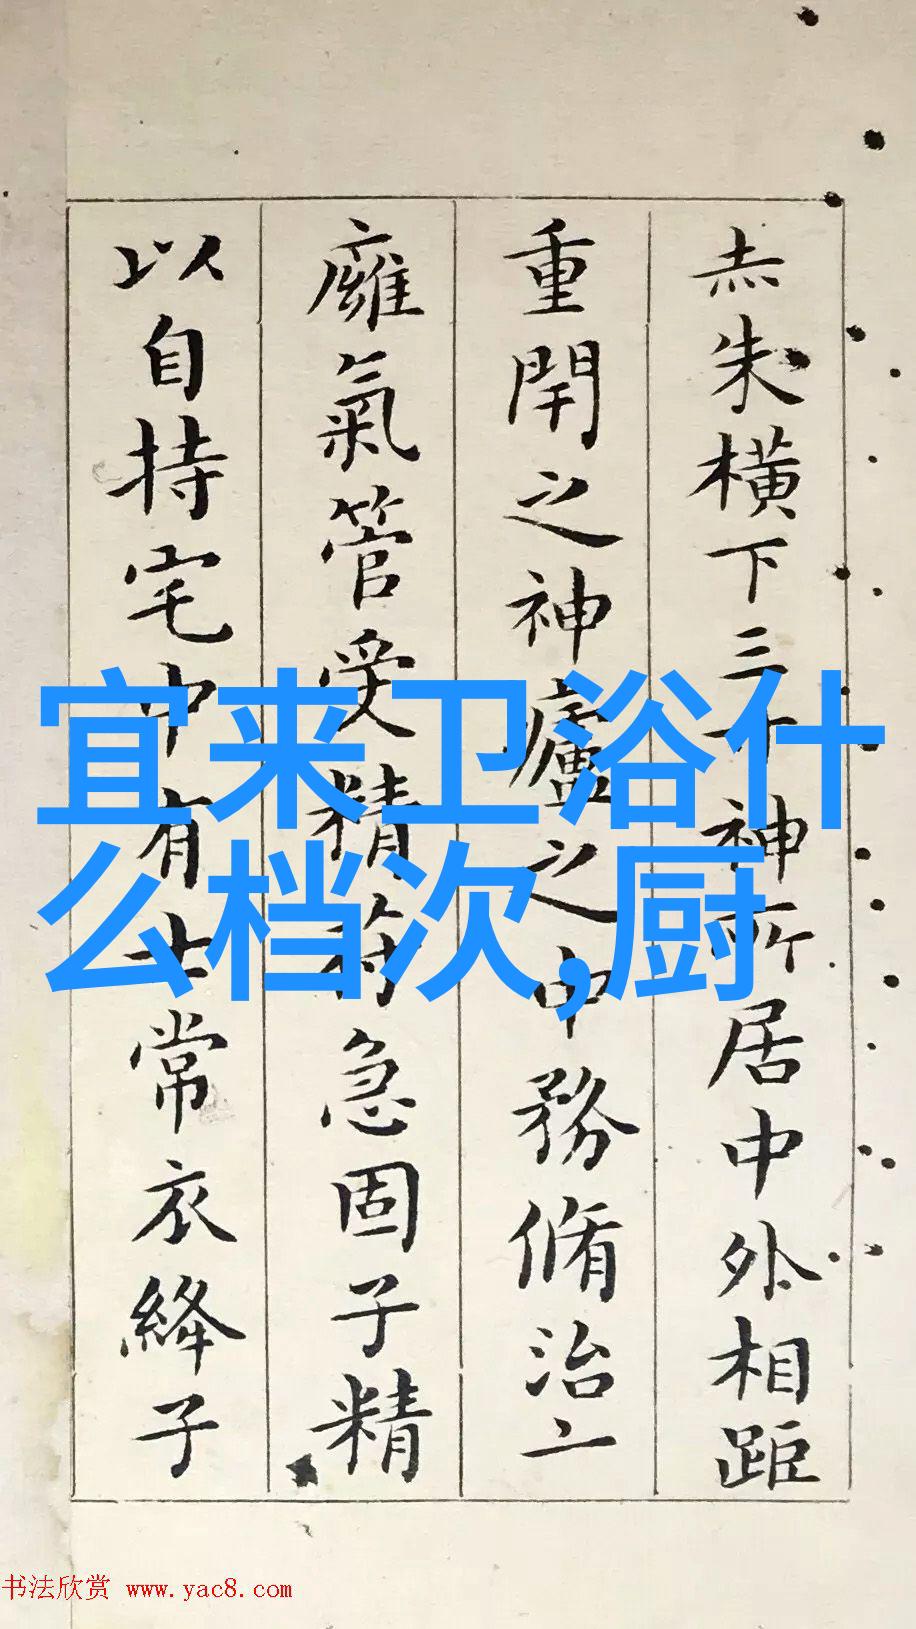 赤朱橫下三寸神所居中外相距
重閇之神廬之中務脩治二
癰氣管受精符急固子精
以自持宅中有士常衣絳子
宜来卫浴什
么档次,厨
书法欣赏 www.yac8.com